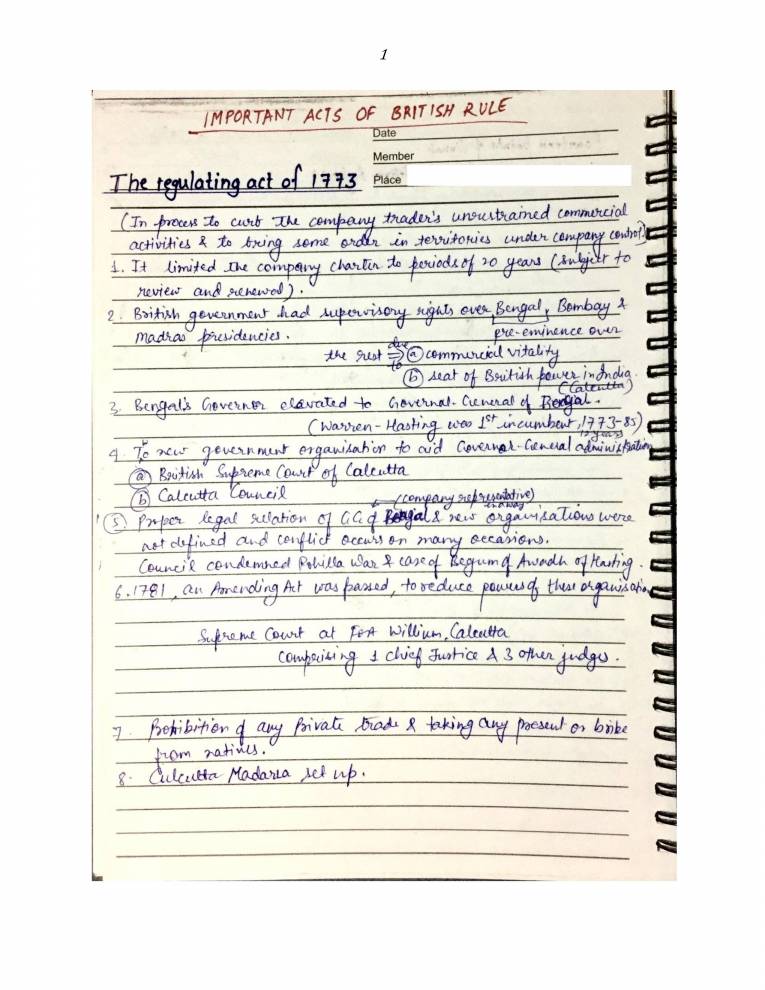 1
IMPORTANT ACTS OF BRITISH RULE
Date
Member
The regulating act of 1773 Place
(In process to curb the company trader's unrustrained commercial
activities & to bring some order in territories under company control)
1. It limited the company charter to periods of 20 years (subject to
review and renewal).
2. British government had supervisory rights over Bengal, Bombay &
Madras presidencies. pre-eminence over
the rest due to ⓐ commercial vitality
ⓑ seat of British power in India.
(Calcutta)
3. Bengal's Governor elevated to Governal-General of Bengal.
(Warren-Hasting was 1st incumbent, 1773-85)
12 years
4. To new government organisation to aid Governor-General administration
ⓐ British Supreme Court of Calcutta
ⓑ Calcutta Council
(company representative)
in a way
⑤ Proper legal relation of GG of Bengal & new organisations were
not defined and conflict occurs on many occasions.
Council condemned Rohilla War & case of Begum of Awadh of Hasting.
6. 1781, an Amending Act was passed, to reduce powers of these organisation
Supreme Court at Fort William, Calcutta
Comprising 1 chief Justice & 3 other judges.
7. Prohibition of any Private trade & taking any present or bribe
from natives.
8. Culcutta Madarsa set up.